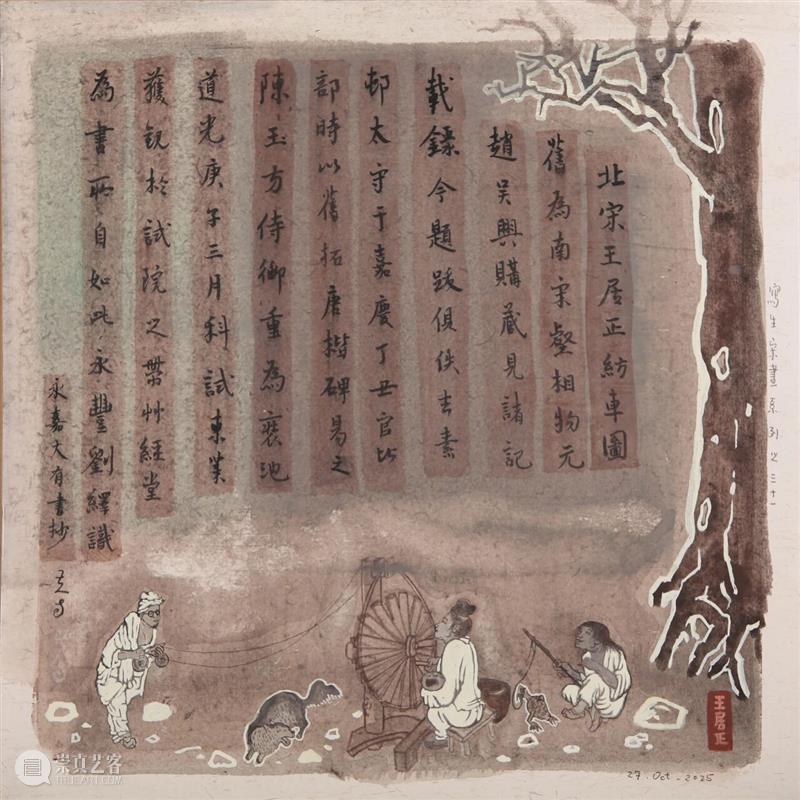 北宋王居正紡車圖
舊為南宋壑相物元
趙吳興購藏見諸記
載今題跋俱佚去素
邨太守于嘉慶丁丑官比
部時以舊拓唐楷碑易之
陳玉方侍御重為裝池
道光庚子三月科試東萊
獲觀於試院之帶艸經堂
為書所自如此永豐劉繹識
永嘉大有書抄
寫生宋畫系列之三十一
王居正
27.Oct-2025
崇真艺客